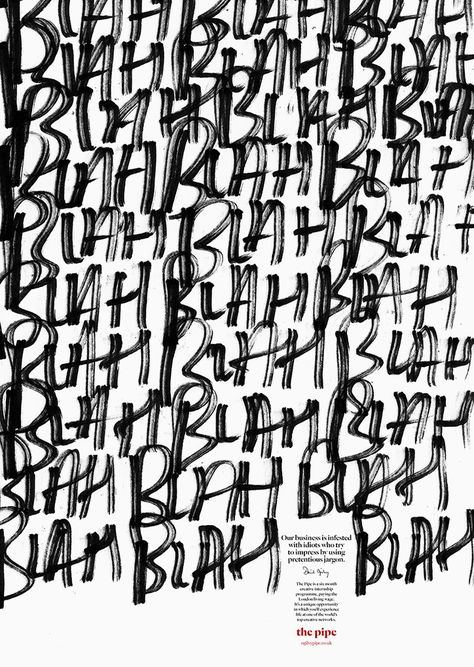 BLAH BLAH BLAH
BLAH BLAH BLAH
BLAH BLAH BLAH
BLAH BLAH BLAH
BLAH BLAH BLAH
BLAH BLAH BLAH
BLAH BLAH BLAH
BLAH BLAH BLAH
BLAH BLAH BLAH
BLAH BLAH
Our business is infested
with idiots who try
to impress by using
pretentious jargon.
David Ogilvy
The Pipe is a six month
creative internship
programme, paying the
London living wage.
It's a unique opportunity
in which you'll experience
life at one of the world's
top creative networks.
the pipe
ogilvypipe.co.uk